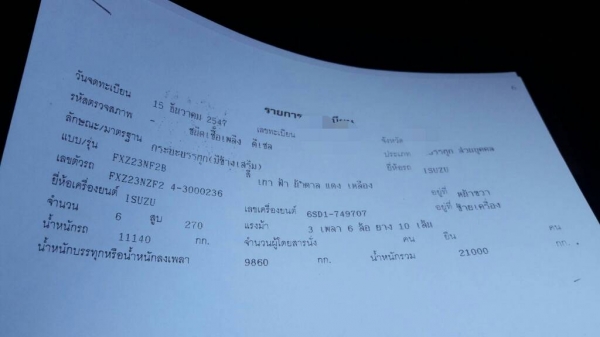 รายการ
วันจดทะเบียน 15 ธันวาคม 2547 เลขทะเบียน จังหวัด
รหัสตรวจสภาพ - ชนิดเชื้อเพลิง ดีเซล ประเภท บรรทุก ส่วนบุคคล
ลักษณะ/มาตรฐาน กระบะบรรทุก(มีข้างเสริม) ยี่ห้อรถ ISUZU
แบบ/รุ่น FXZ23NF2B สี เทา ฟ้า น้ำตาล แดง เหลือง
เลขตัวรถ FXZ23NZF2 4-3000236 อยู่ที่ คัสขวา
ยี่ห้อเครื่องยนต์ ISUZU เลขเครื่องยนต์ 6SD1-749707 อยู่ที่ ซ้ายเครื่อง
จำนวน 6 สูบ 270 แรงม้า 3 เพลา 6 ล้อ ยาง 10 เส้น
น้ำหนักรถ 11140 กก. จำนวนผู้โดยสารนั่ง คน ยืน คน
น้ำหนักบรรทุกหรือน้ำหนักลงเพลา 9860 กก. น้ำหนักรวม 21000 กก.